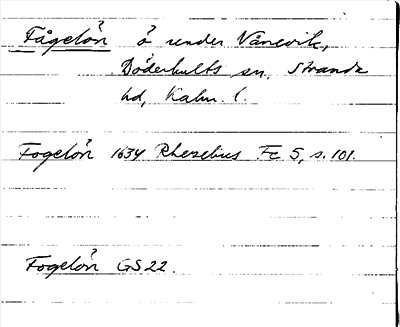 Fågelön ö under Vånevik,
Döderhults sn, Stranda
hd, Kalm. l.
Fogelön 1634 Rhezelius Fc 5, s. 101.
Fogelön GS 22.